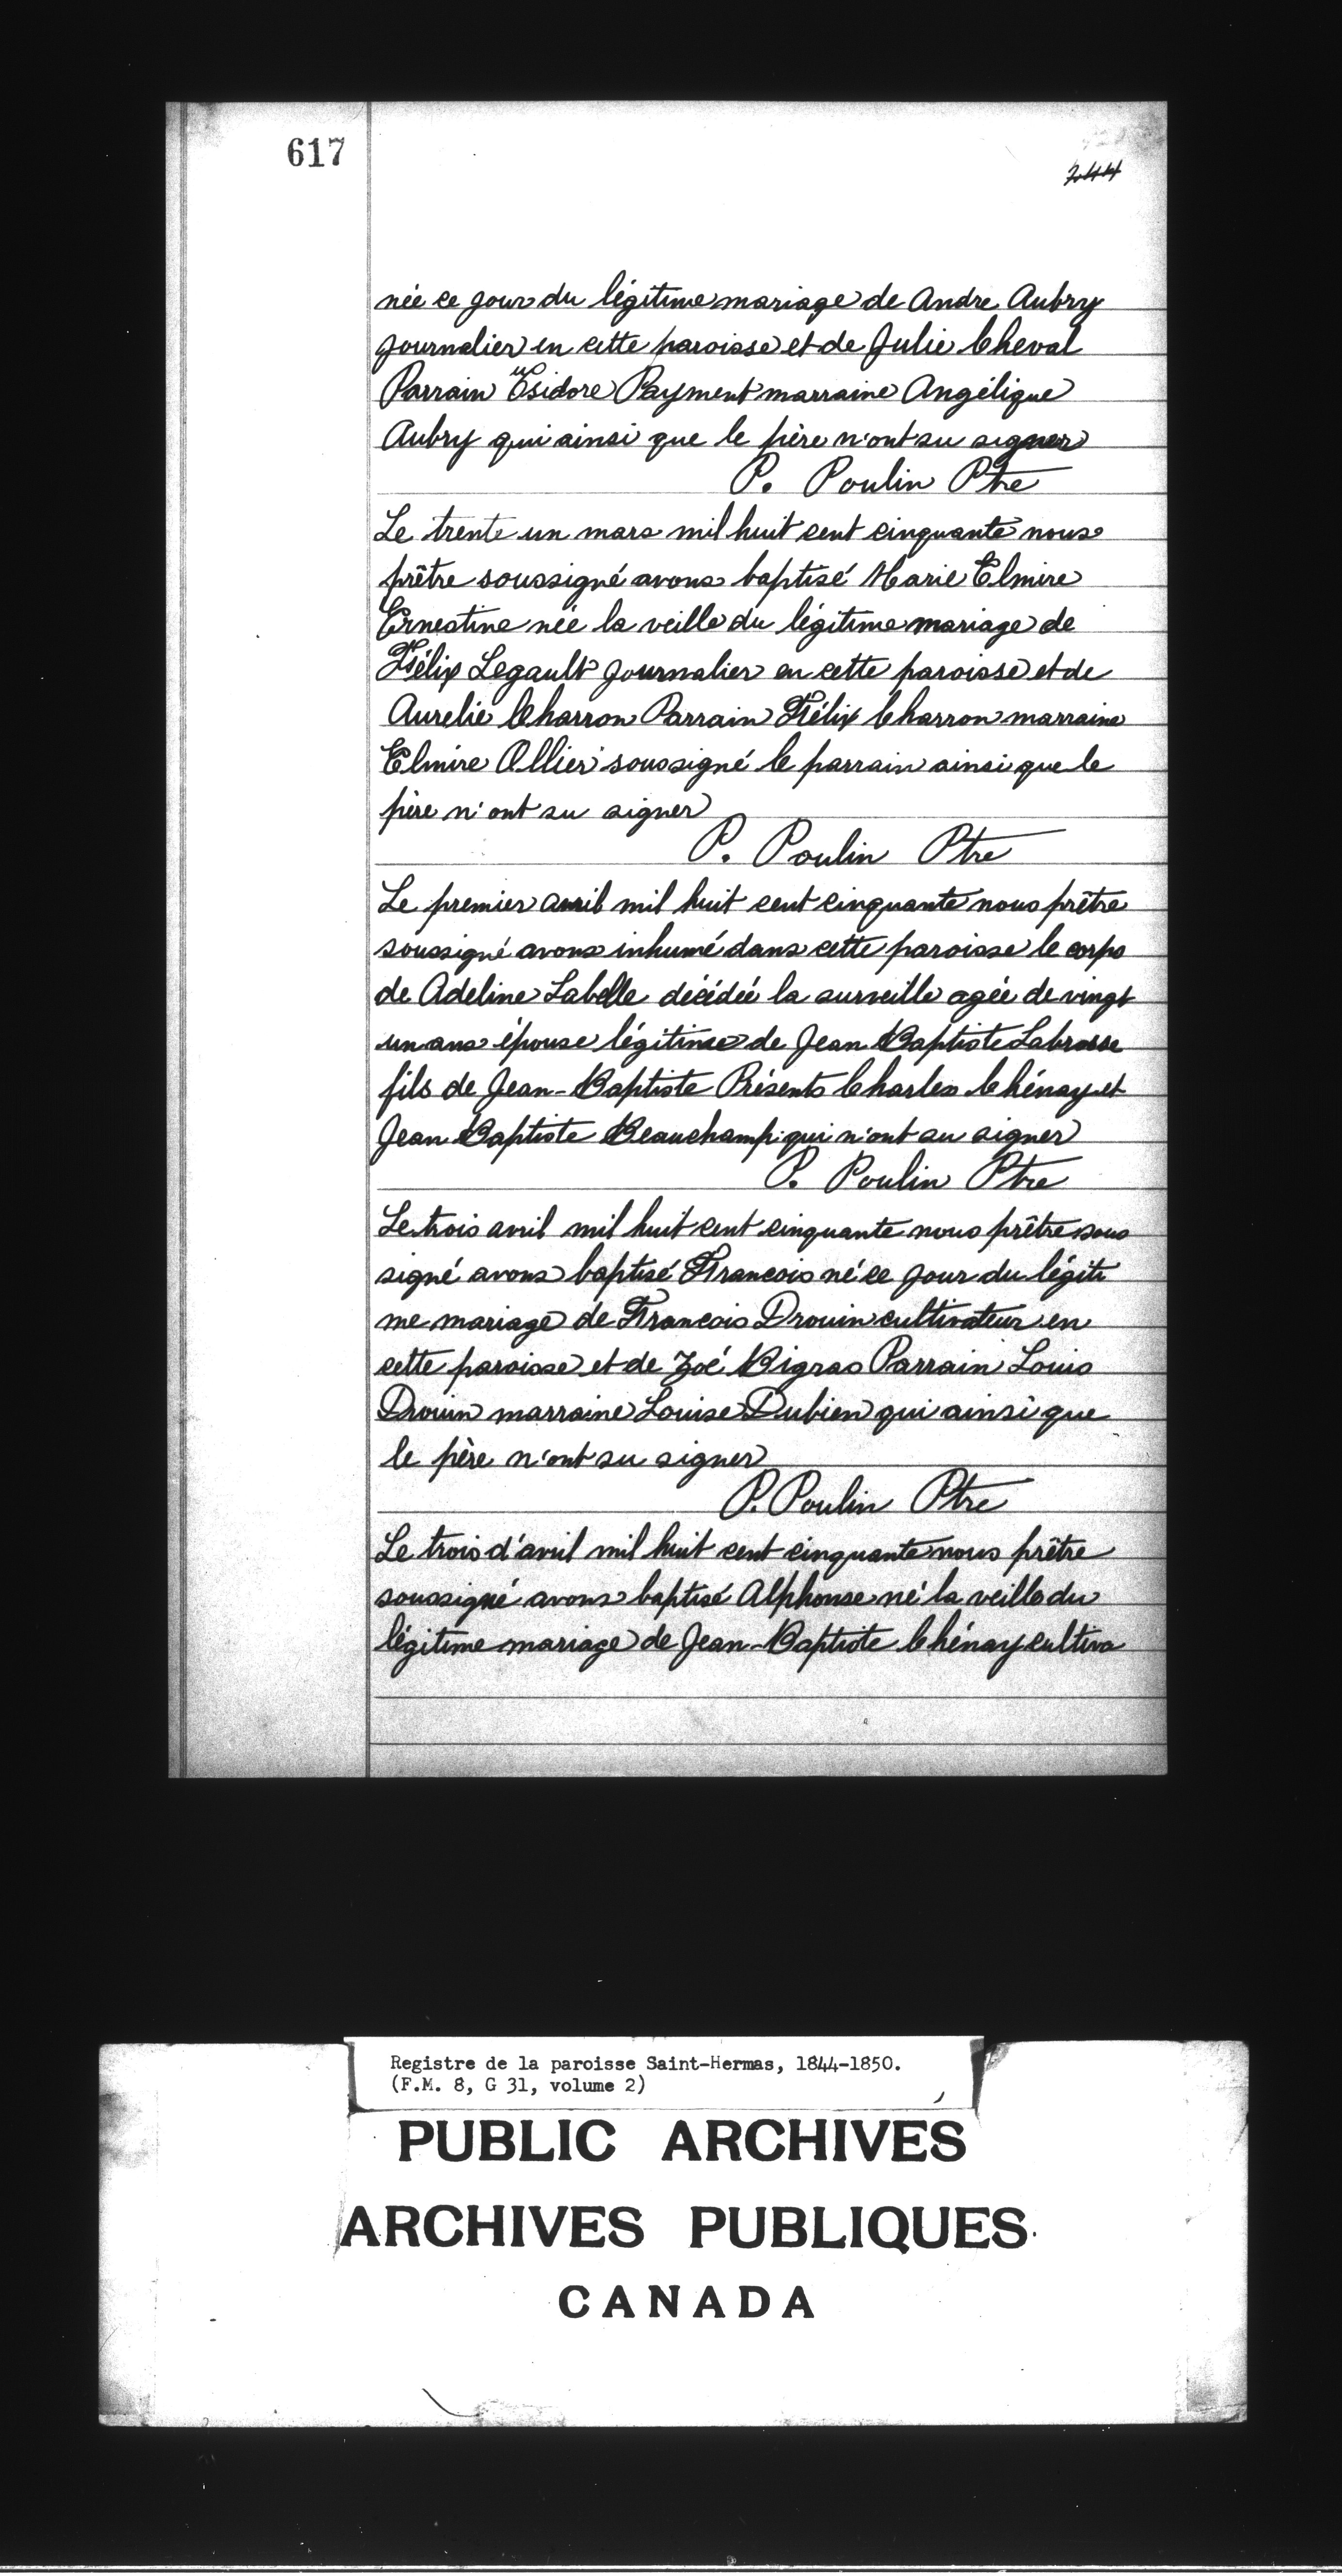 617
244
née ce jour du légitime mariage de Andre Aubry
journalier en cette paroisse et de Julie Cheval
Parrain Esidore Payment marraine Angélique
Aubry qui ainsi que le père n'ont su signer
P. Poulin Ptre
Le trente un mars mil huit cent cinquante nous
prêtre soussigné avons baptisé Marie Elmire
Ernestine née la veille du légitime mariage de
Félix Legault journalier en cette paroisse et de
Aurelie Charron Parrain Félix Charron marraine
Elmire Ollier soussigné le parrain ainsi que le
père n'ont su signer
P. Poulin Ptre
Le premier avril mil huit cent cinquante nous prêtre
soussigné avons inhumé dans cette paroisse le corps
de Adeline Labelle décédée la surveille agée de vingt
un ans épouse légitime de Jean Baptiste Labrosse
fils de Jean-Baptiste Présents Charles Chénay et
Jean Baptiste Beauchamp qui n'ont su signer
P. Poulin Ptre
Le trois avril mil huit cent cinquante nous prêtre sous
signé avons baptisé Francois né ce jour du légiti
me mariage de Francois Drouin cultivateur en
cette paroisse et de Zoé Bigras Parrain Louis
Drouin marraine Louise Dubien qui ainsi que
le père n'ont su signer
P. Poulin Ptre
Le trois d'avril mil huit cent cinquante nous prêtre
soussigné avons baptisé Alphonse né la veille du
légitime mariage de Jean-Baptiste Chénay cultiva
Registre de la paroisse Saint-Hermas, 1844-1850.
(F.M. 8, G 31, volume 2)
PUBLIC ARCHIVES
ARCHIVES PUBLIQUES
CANADA